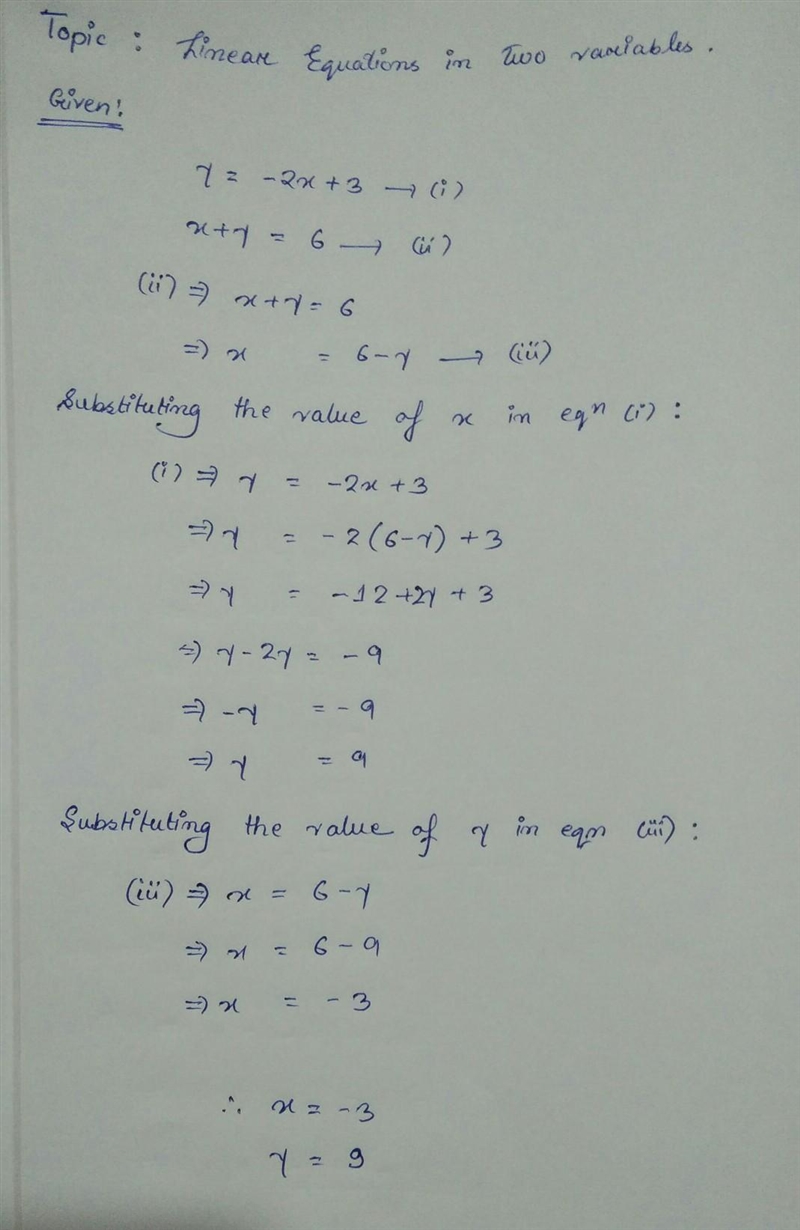 Topic : Linear Equations in two variables.
Given!
y = -2x + 3 → (i)
x+y = 6 → (ii)
(ii) ⇒ x+y = 6
⇒ x = 6-y → (iii)
Substituting the value of x in eqⁿ (i) :
(i) ⇒ y = -2x + 3
⇒ y = -2(6-y) + 3
⇒ y = -12+2y + 3
⇒ y-2y = -9
⇒ -y = -9
⇒ y = 9
Substituting the value of y in eqn (iii) :
(iii) ⇒ x = 6-y
⇒ x = 6-9
⇒ x = -3
∴ x = -3
y = 9